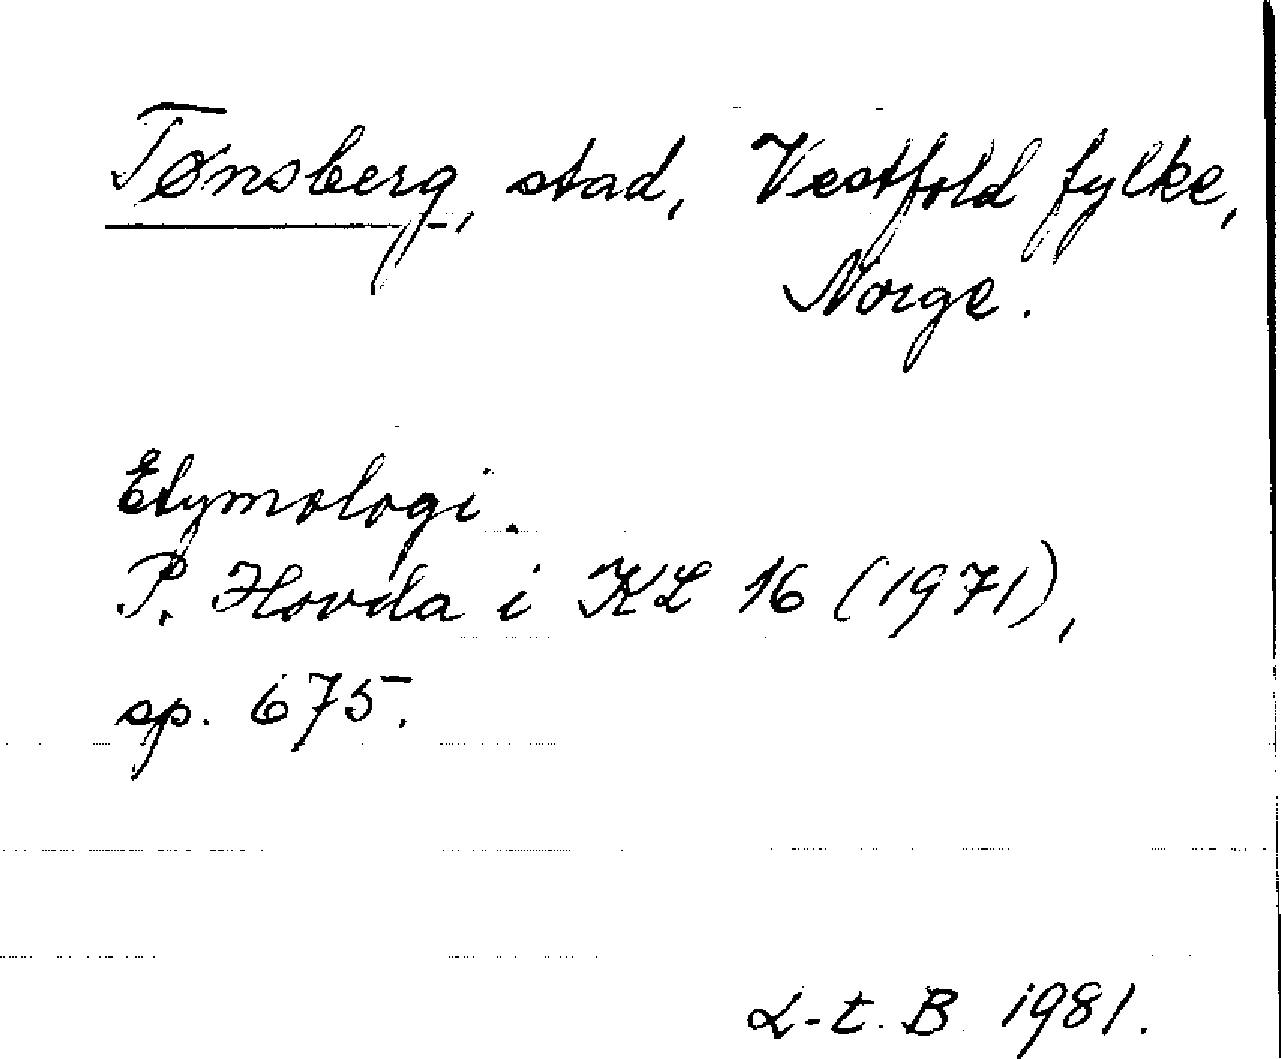 Tønsberg, stad, Vestfold fylke,
Norge.
Etymologi.
P. Hovda i KL 16 (1971),
sp. 675.
L-t. B 1981.